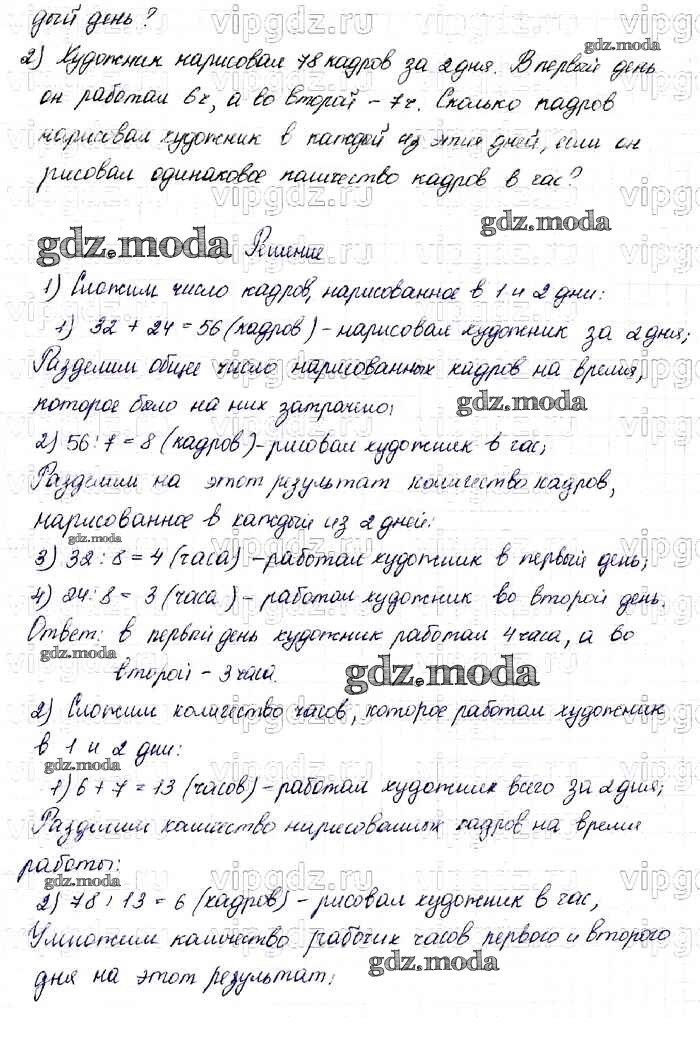 дый день?
2) Художник нарисовал 78 кадров за 2 дня. В первый день
он работал 6ч, а во второй - 7ч. Сколько кадров
нарисовал художник в каждый из этих дней, если он
рисовал одинаковое количество кадров в час?
Решение
1) Сложим число кадров, нарисованное в 1 и 2 дни:
1) 32 + 24 = 56 (кадров) - нарисовал художник за 2 дня;
Разделим общее число нарисованных кадров на время,
которое было на них затрачено:
2) 56 : 7 = 8 (кадров) - рисовал художник в час;
Разделим на этот результат количество кадров,
нарисованное в каждый из 2 дней:
3) 32 : 8 = 4 (часа) - работал художник в первый день;
4) 24 : 8 = 3 (часа) - работал художник во второй день.
Ответ: в первый день художник работал 4 часа, а во
второй - 3 часа.
2) Сложим количество часов, которое работал художник
в 1 и 2 дни:
1) 6 + 7 = 13 (часов) - работал художник всего за 2 дня;
Разделим количество нарисованных кадров на время
работы:
2) 78 : 13 = 6 (кадров) - рисовал художник в час,
Умножим количество рабочих часов первого и второго
дня на этот результат:
gdz.moda
vipgdz.ru